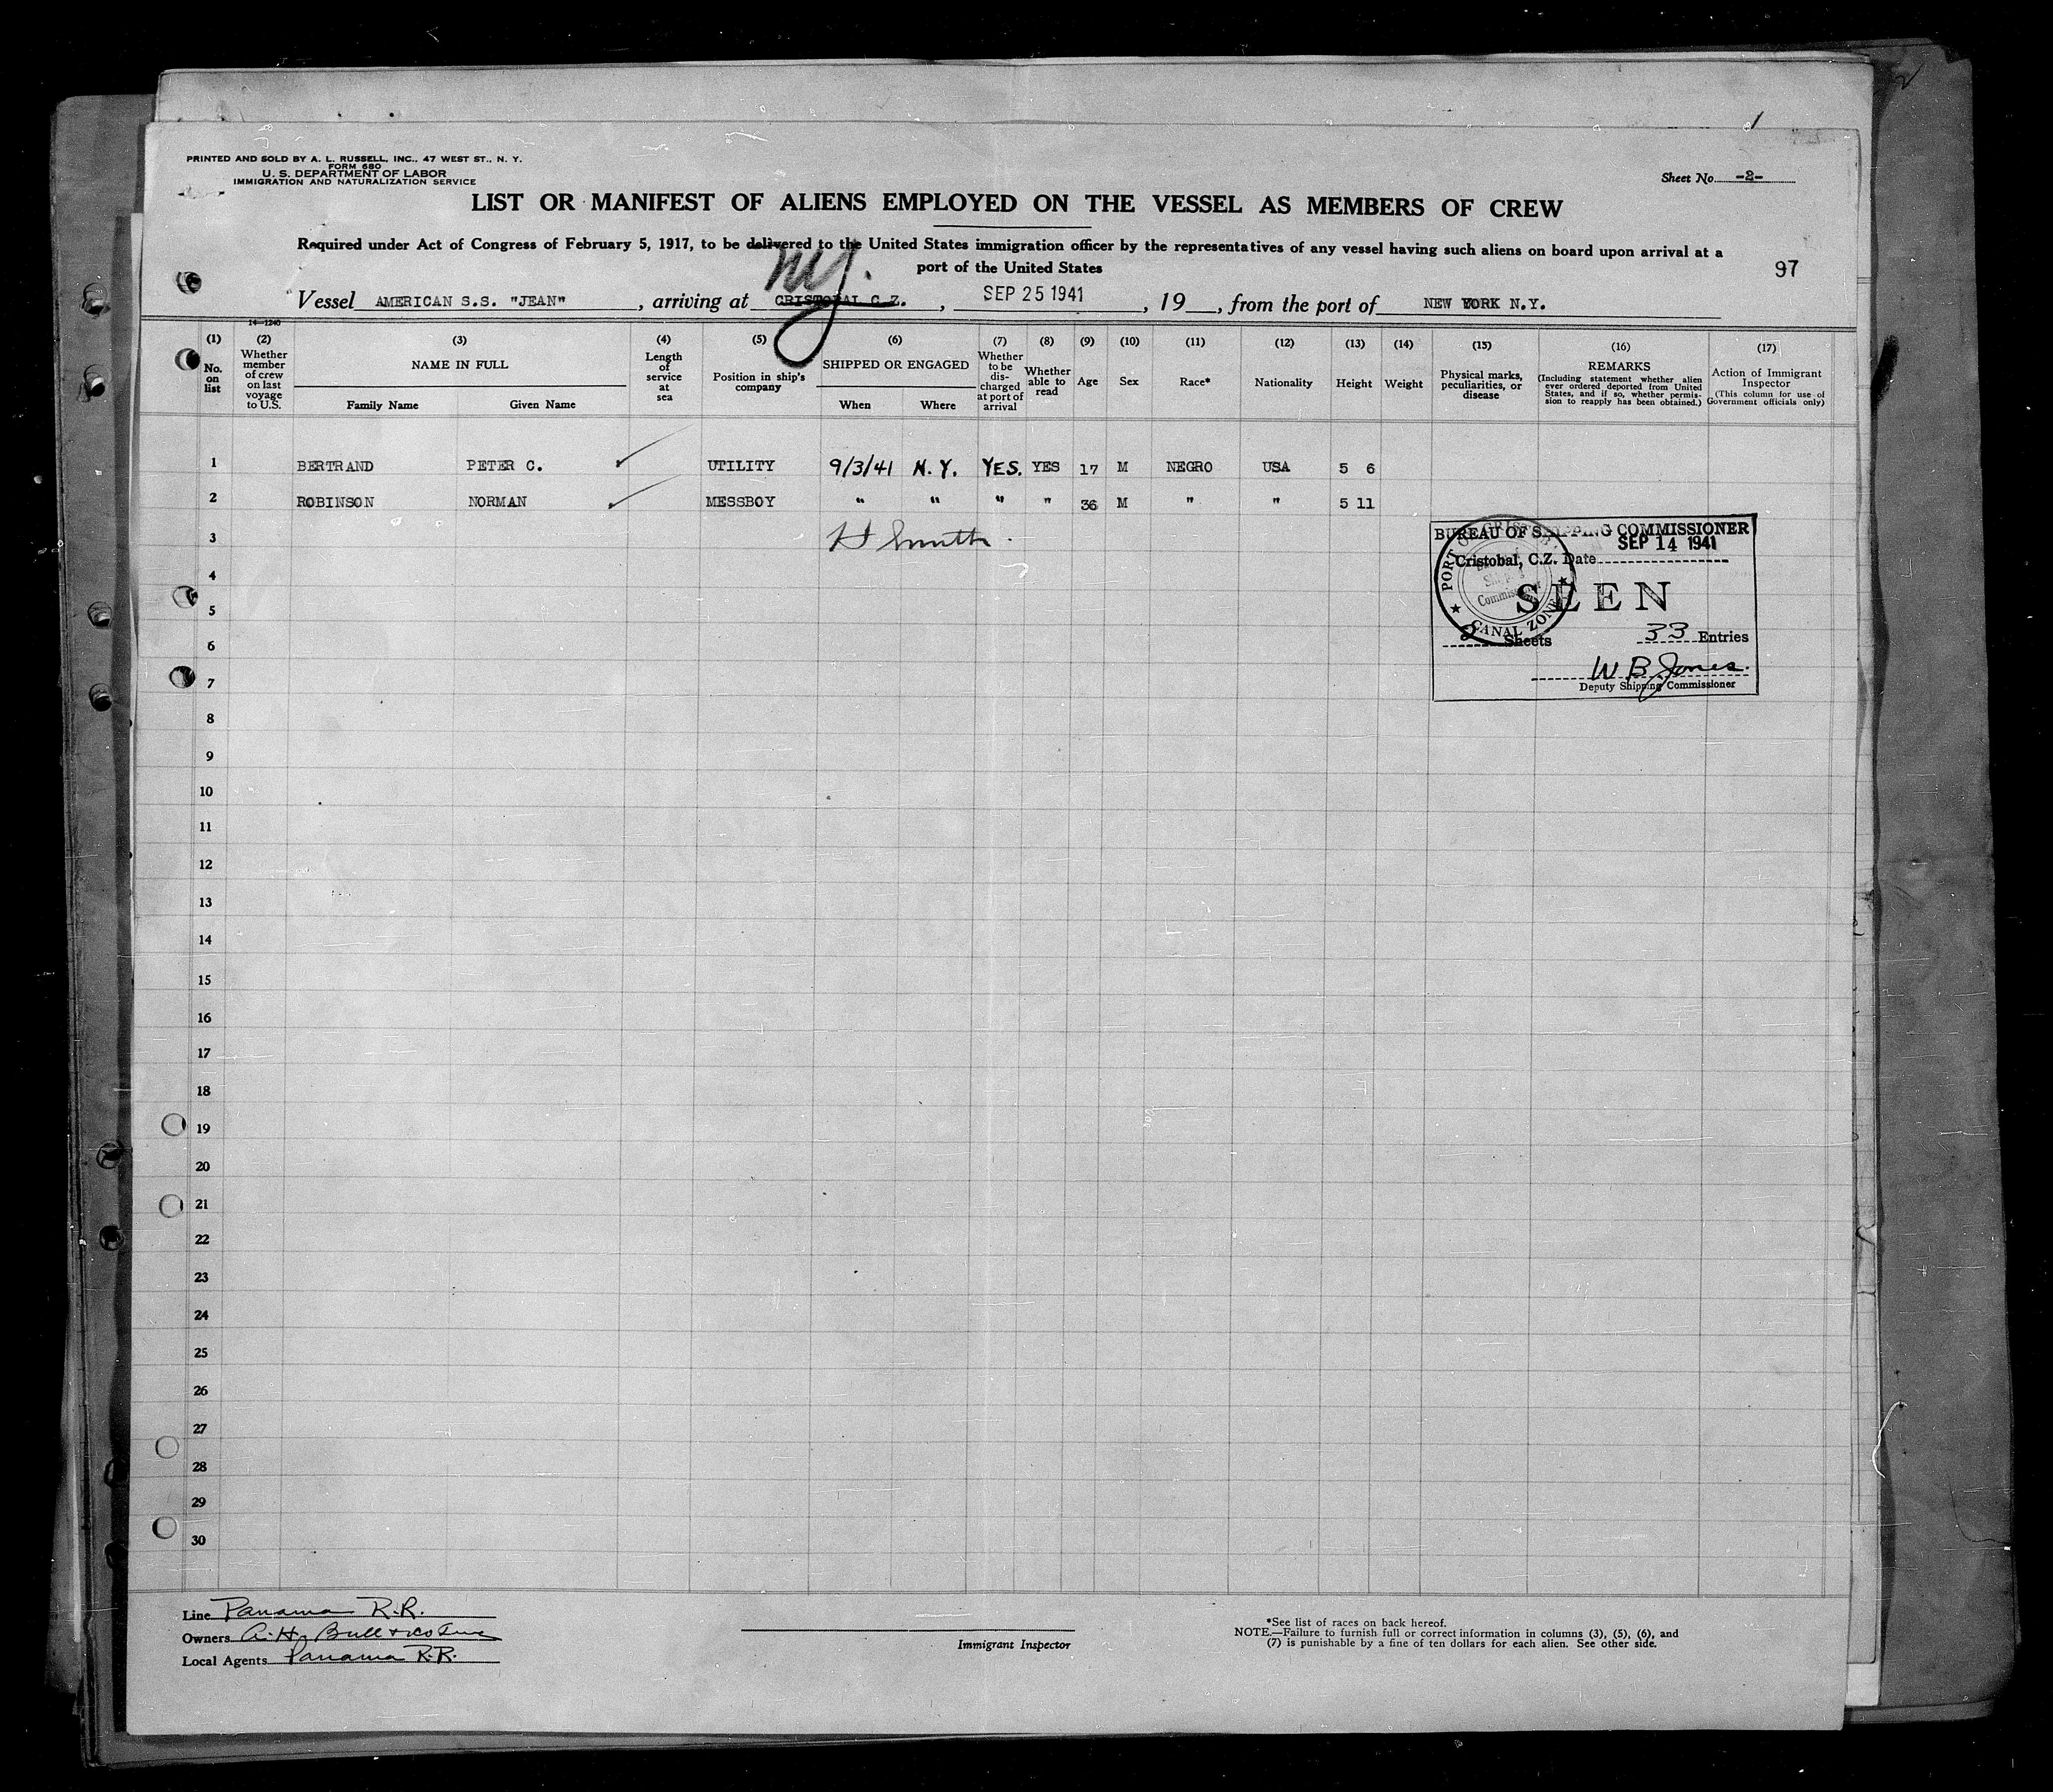 PRINTED AND SOLD BY A. L. RUSSELL, INC., 47 WEST ST., N. Y.
FORM 680
U. S. DEPARTMENT OF LABOR
IMMIGRATION AND NATURALIZATION SERVICE
Sheet No. -2-
LIST OR MANIFEST OF ALIENS EMPLOYED ON THE VESSEL AS MEMBERS OF CREW
Required under Act of Congress of February 5, 1917, to be delivered to the United States immigration officer by the representatives of any vessel having such aliens on board upon arrival at a
port of the United States
97
Vessel AMERICAN S.S. "JEAN", arriving at CRISTOBAL C.Z. NY., SEP 25 1941, 19__, from the port of NEW YORK N.Y.
14-1240
(1) No. on list
(2) Whether member of crew on last voyage to U.S.
(3) NAME IN FULL
Family Name Given Name
(4) Length of service at sea
(5) Position in ship's company
(6) SHIPPED OR ENGAGED
When Where
(7) Whether to be discharged at port of arrival
(8) Whether able to read
(9) Age
(10) Sex
(11) Race*
(12) Nationality
(13) Height
(14) Weight
(15) Physical marks, peculiarities, or disease
(16) REMARKS
(Including statement whether alien ever ordered deported from United States, and if so, whether permission to reapply has been obtained.)
(17) Action of Immigrant Inspector
(This column for use of Government officials only)
1 BERTRAND PETER C. UTILITY 9/3/41 N.Y. YES. YES 17 M NEGRO USA 5 6
2 ROBINSON NORMAN MESSBOY " " " " 36 M " " 5 11
3 Smith
BUREAU OF SHIPPING COMMISSIONER
SEP 14 1941
Cristobal, C.Z. Date
SEEN
2 Sheets 33 Entries
W B Jones.
Deputy Shipping Commissioner
PORT OF CRISTOBAL
Shipping
Commissioner
CANAL ZONE
4
5
6
7
8
9
10
11
12
13
14
15
16
17
18
19
20
21
22
23
24
25
26
27
28
29
30
Line Panama R.R.
Owners A. H. Bull & Co Inc
Local Agents Panama R.R.
Immigrant Inspector
*See list of races on back hereof.
NOTE.—Failure to furnish full or correct information in columns (3), (5), (6), and
(7) is punishable by a fine of ten dollars for each alien. See other side.